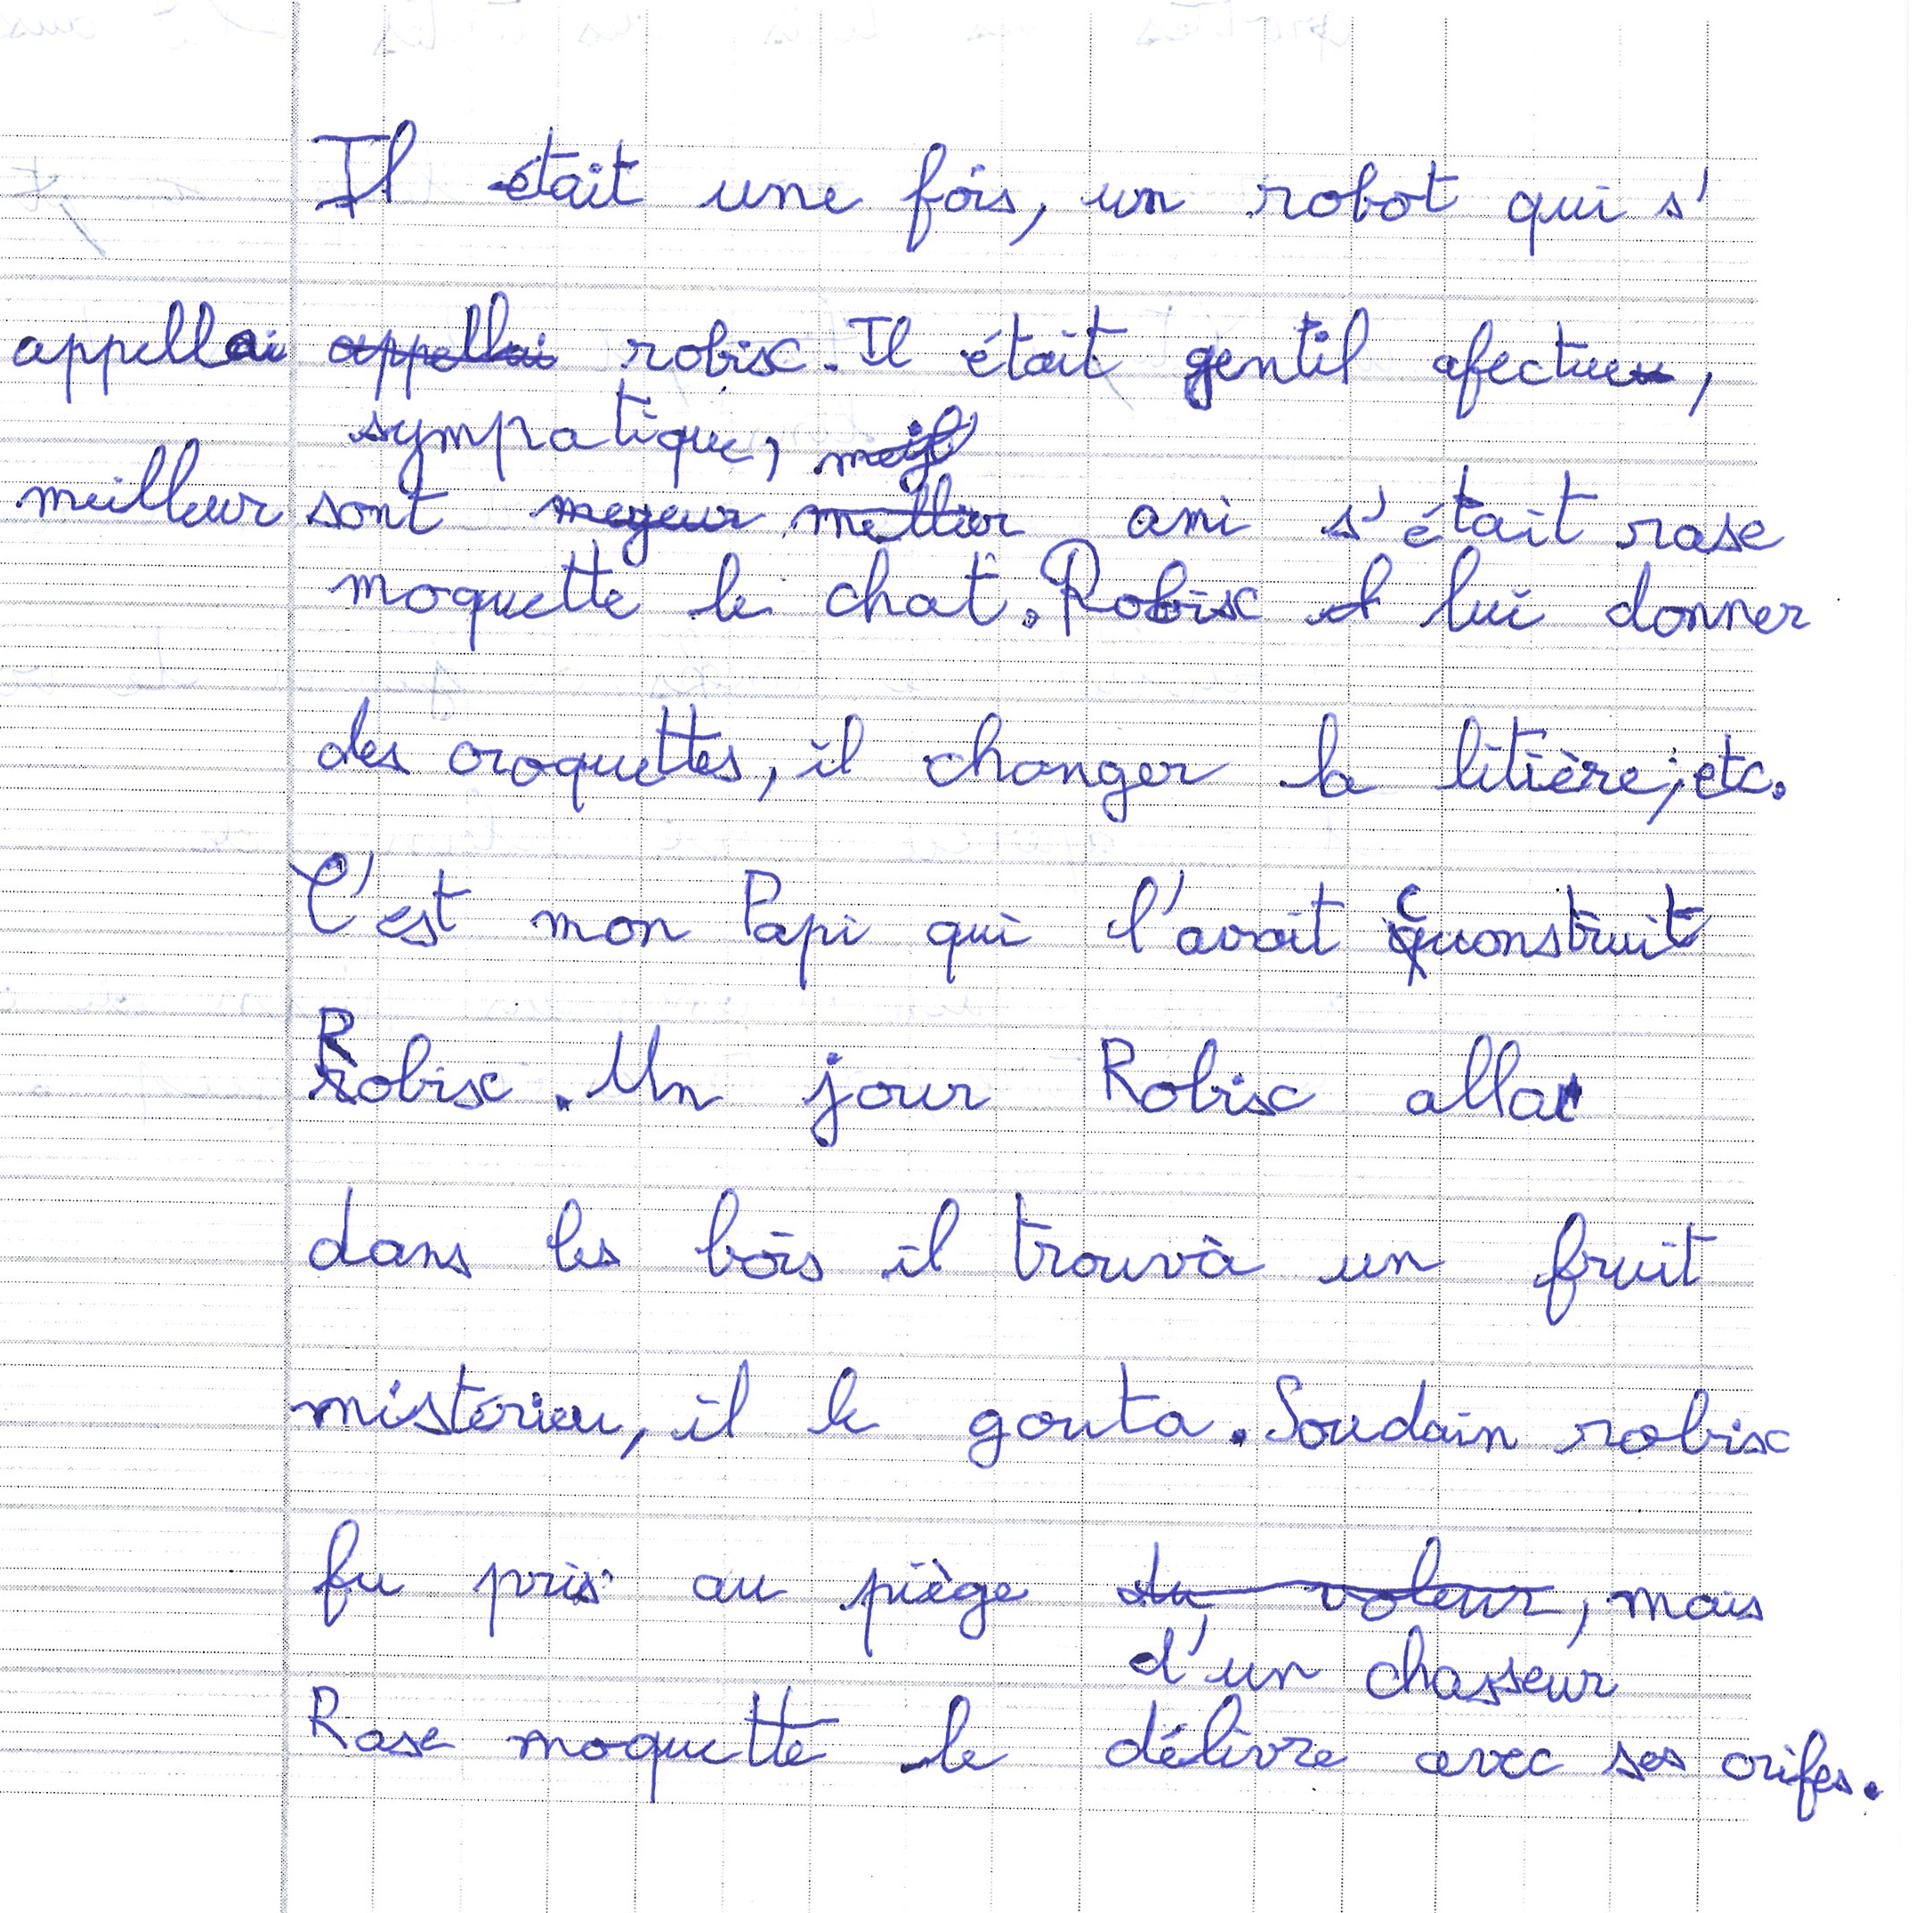 Il était une fois, un robot qui s'
appellai appellai robisc. Il était gentil afectueu,
sympatique,
meilleur sont megeur mellier ami s'était rase
moquette le chat. Robisc lui donner
des croquettes, il changer la litière, etc.
C'est mon Papi qui l'avait construit
Robisc. Un jour Robisc alla
dans les bois il trouvà un fruit
mistérieu, il le gouta. Soudain robisc
fu pris au piège du voleur, mais
d'un chasseur
Rase moquette le délivre avec ses crifes.